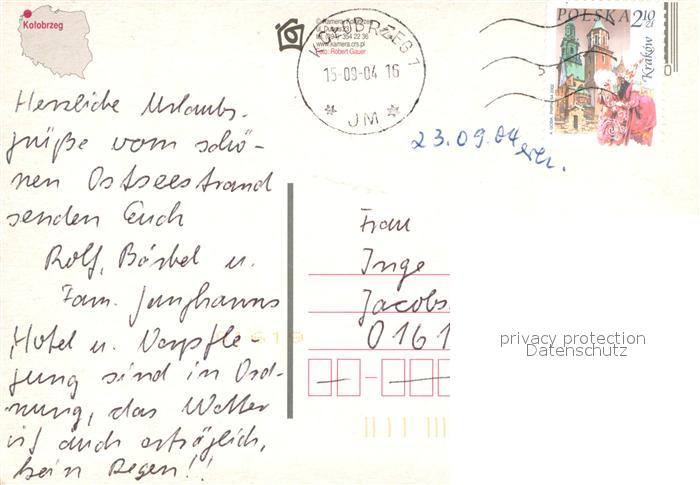 Kołobrzeg
© Kamera Kołobrzeg
tel. (094) 354 22 36
www.kamera.crs.pl
Foto: Robert Gauer
KOŁOBRZEG 1
15-09-04 16
* JM *
POLSKA 2¹⁰ ZŁ
Kraków
23.09.04
Herzliche Urlaubs-
grüße vom schö-
nen Ostseestrand
senden Euch
Rolf, Bärbel u.
Fam. Junghanns
Hotel u. Verpfle-
gung sind in Ord-
nung, das Wetter
ist auch erträglich,
kein Regen!!
Frau
Inge
Jacobs
0161
privacy protection
Datenschutz